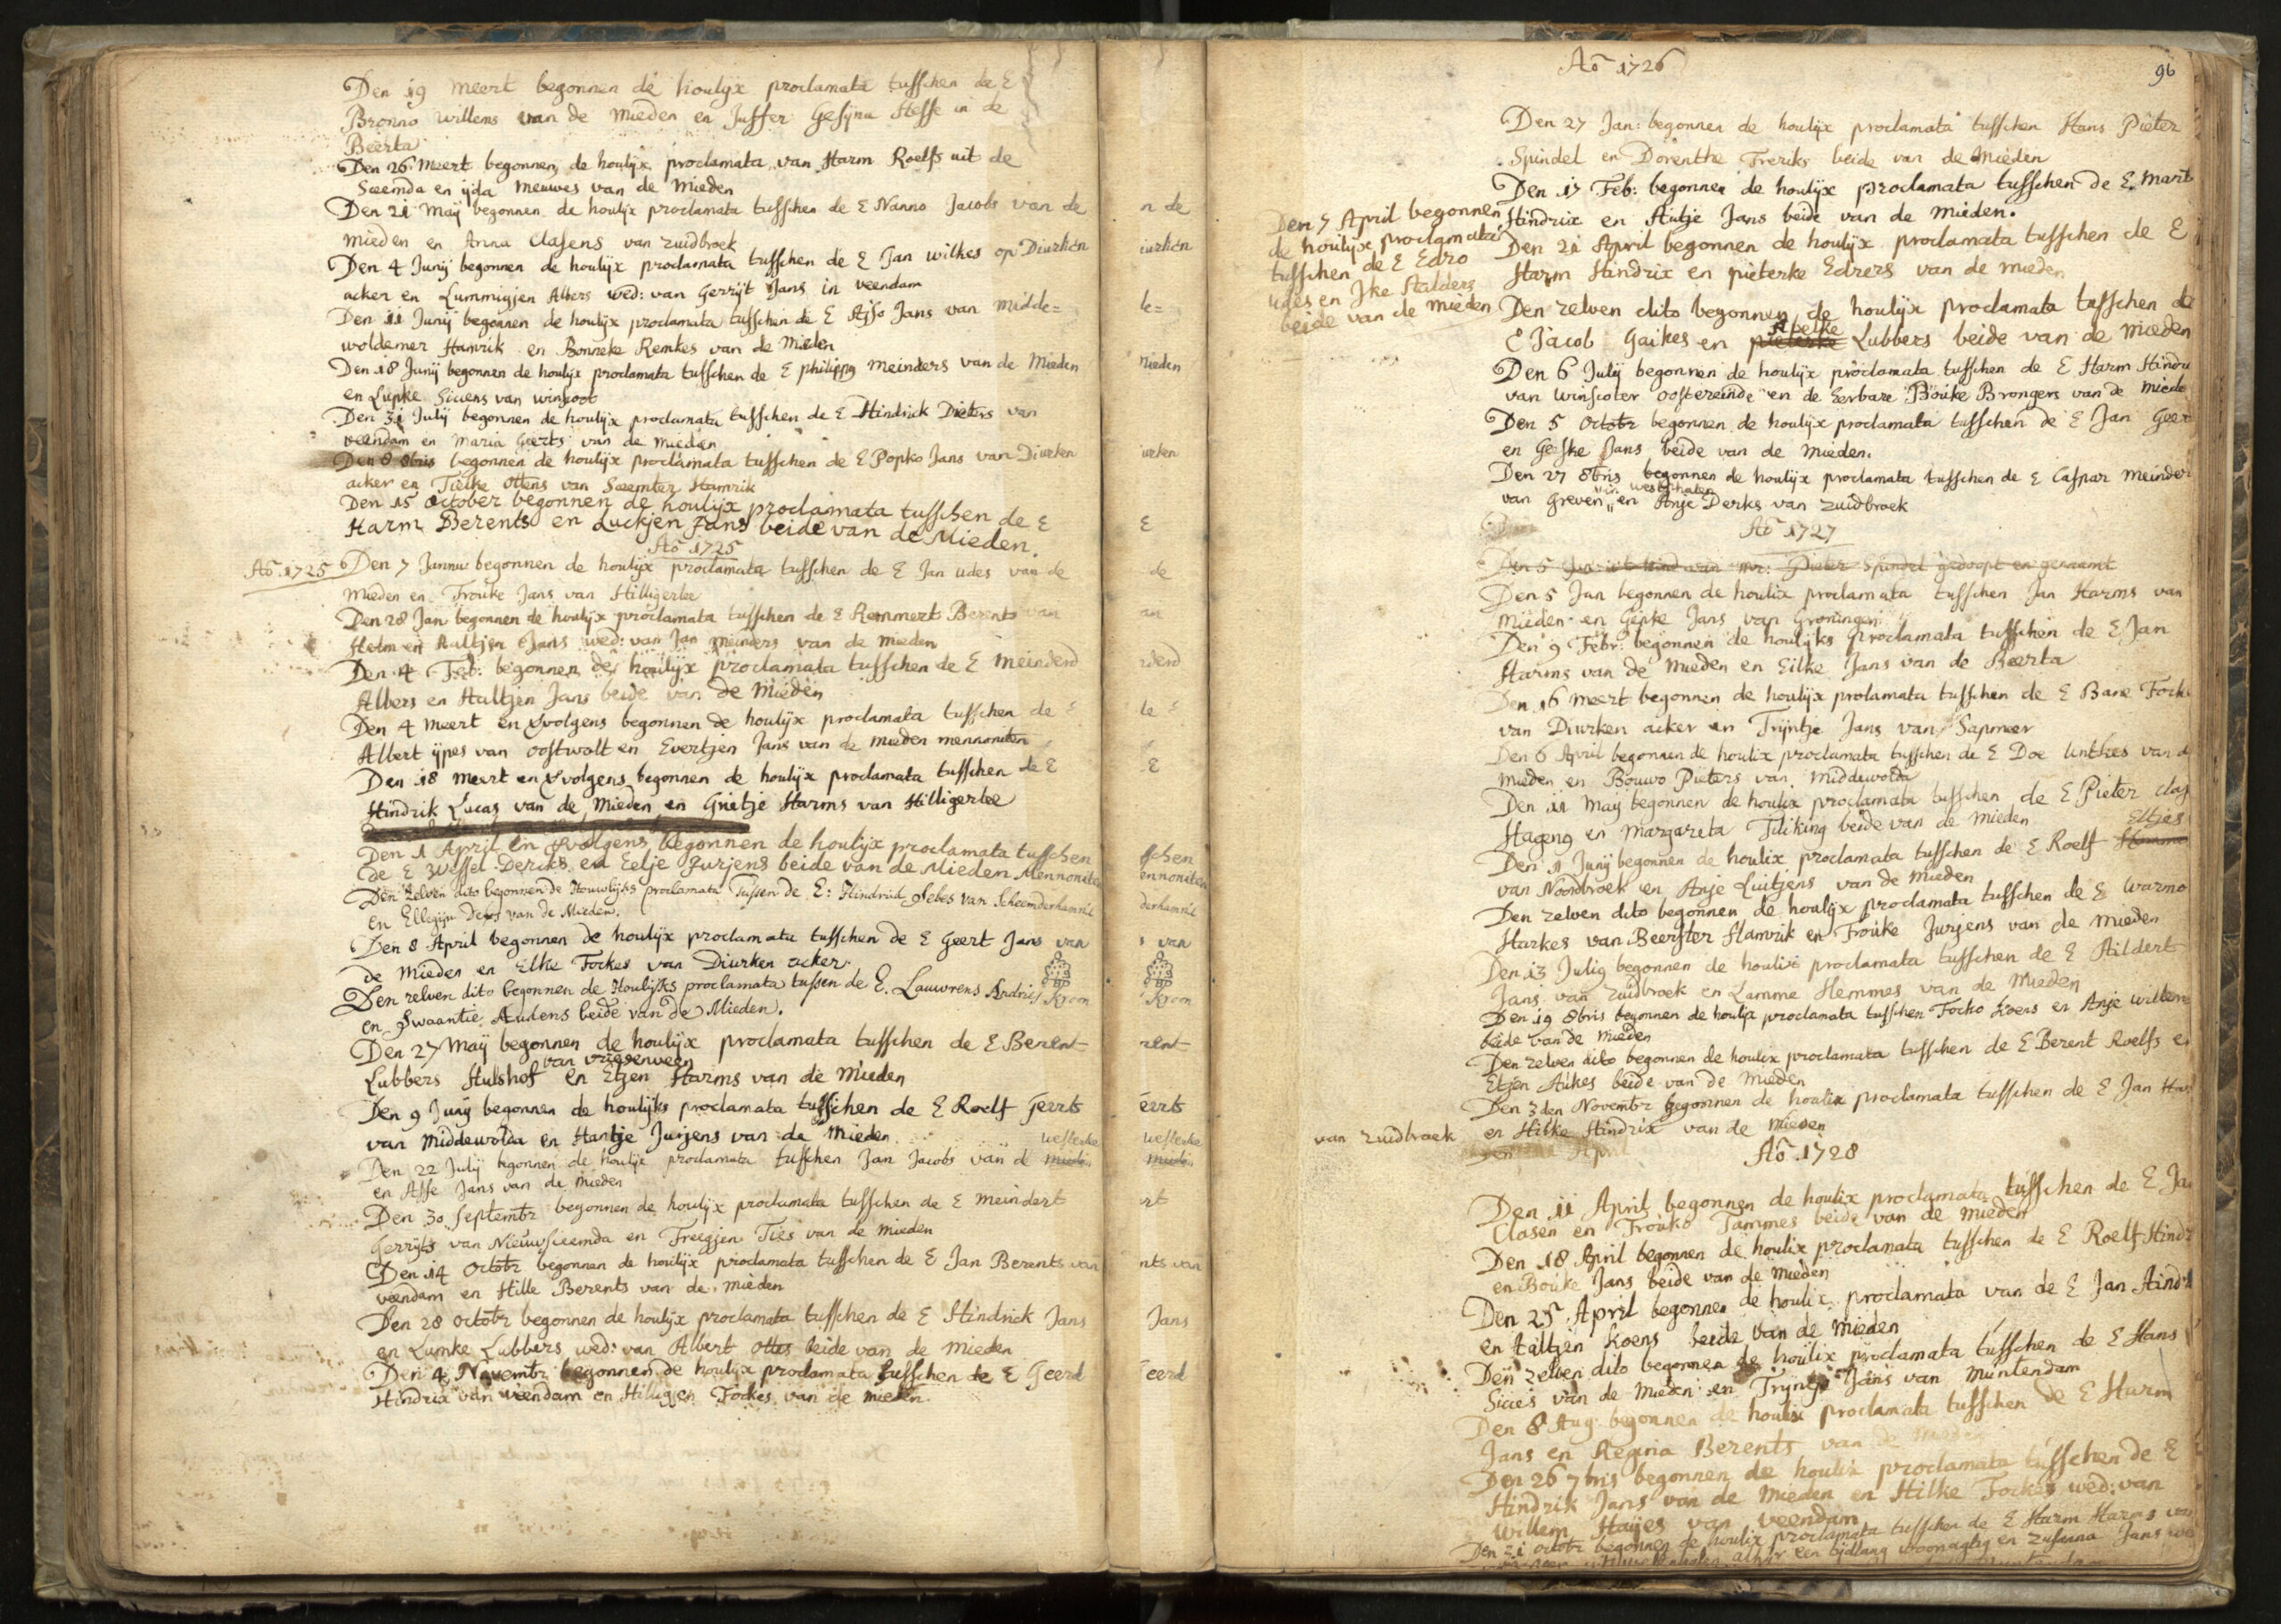 Den 19 meert begonnen de houlyx proclamata tusschen de E
Bronno willems van de mieden en Juffer Gesijna Hesse in de
Beerta
Den 26 Meert begonnen de houlyx proclamata van Harm Roelfs uit de
Sceemda en ijda Meuwes van de Mieden
Den 21 Maij begonnen de houlyx proclamata tusschen de E Nanno Jacobs van de
mieden en Anna Clasens van zuidbroek
Den 4 Junij begonnen de houlyx proclamata tusschen de E Jan wilkes op Diurken
acker en Lummigjen Albers wed: van Gerrijt Jans in veendam
Den 11 Junij begonnen de houlyx proclamata tusschen de E Ajso Jans van Midde=
woldemer Hamrik en Bonneke Remkes van de Mieden
Den 18 Junij begonnen de houlyx proclamata tusschen de E philippg meinders van de Mieden
en Lupke Siciens van winscoot
Den 31 Julij begonnen de houlyx proclamata tusschen de E Hindrick Pieters van
veendam en Maria Geerts van de mieden
Den 8 8bris begonnen de houlyx proclamata tusschen de E Popko Jans van Diurken
acker en Tietke Ottens van Sceemter Hamrik
Den 15 October begonnen de houlyx proclamata tusschen de E
Harm Berents en Luckjen Jans beide van de Mieden.
Aõ 1725
Aõ 1725 Den 7 Jannu begonnen de houlyx proclamata tusschen de E Jan udes van de
mieden en Frouke Jans van Hilligerlee
Den 28 Jan begonnen de houlyx proclamata tusschen de E Remmert Berents van
Helm en Aaltjen Jans wed: van Jan meinders van de mieden
Den 4 Feb: begonnen de houlyx proclamata tusschen de E meinderd
Albers en Haltjen Jans beide van de Mieden
Den 4 meert en volgens begonnen de houlyx proclamata tusschen de E
Albert ijpes van oostwolt en Evertjen Jans van de mieden mennoniten
Den 18 meert en volgens begonnen de houlyx proclamata tusschen de E
Hindrik Lucas van de Mieden en Grietje Harms van Hilligerlee
Den 1 April en volgens begonnen de houlyx proclamata tusschen
de E Wessel Dercks en Eelje Jurjens beide van de Mieden Mennoniten
Den zelven dito begonnen de Houwlijks proclamata Tussen de E: Hindrick Sebes van Scheemderhamrik
en Ellegijn Derks van de Mieden.
Den 8 April begonnen de houlyx proclamata tusschen de E Geert Jans van
de Mieden en Elke Fockes van Diurken acker.
Den zelven dito begonnen de Houlijks proclamata tussen de E. Lauwrens Andries Kroon
en Swaantie Aukens beide van de Mieden.
Den 27 Maij begonnen de houlyx proclamata tusschen de E Berent
van vriesenveen
Lubbers Hulshof en Etzen Harms van de Mieden
Den 9 Junij begonnen de houlyks proclamata tusschen de E Roelf Geerts
van Middewolda en Hantje Jurjens van de Mieden
westerlee
Den 22 Julij begonnen de houlyx proclamata tusschen Jan Jacobs van d mieden
en Affe Jans van de mieden
Den 30 septembr begonnen de houlyx proclamata tusschen de E meindert
Gerrijts van Nieuwsceemda en Freegjen Ties van de mieden
Den 14 octobr begonnen de houlyx proclamata tusschen de E Jan Berents van
veendam en Hille Berents van de mieden
Den 28 octobr begonnen de houlyx proclamata tusschen de E Hindrick Jans
en Lumke Lubbers wed: van Albert ottes beide van de mieden
Den 4 Novembr begonnen de houlyx proclamata tusschen de E Geerd
Hindrix van veendam en Hilligjen Fockes van de mieden.
n de
iurken
le=
Mieden
iurken
E
de
an
derd
de E
E
schen
ennoniten
derhamrik
s van
Kroon
rent
eerts
westerlee
mieden
rt
nts van
Jans
eerd
Aõ 1726
96
Den 27 Jan: begonnen de houlyx proclamata tusschen Hans Pieter
Spindel en Dorenthe Freriks beide van de Mieden
Den 17 Feb: begonnen de houlyx proclamata tusschen de E. Mart
Hindrix en Autje Jans beide van de mieden.
Den 7 April begonnen
de houlyx proclamata
tusschen de E Edzo
udes en Jke Halders
beide van de Mieden
Den 21 April begonnen de houlyx proclamata tusschen de E
Harm Hindrix en pieterke Edzers van de mieden
Den zelven dito begonnen de houlyx proclamata tusschen de
Abelke
E Jacob Gaikes en pieterke Lubbers beide van de mieden
Den 6 Julij begonnen de houlyx proclamata tusschen de E Harm Hindri
van winscoter oostereinde en de Eerbare Bouke Brongers van de miede
Den 5 Octobr begonnen de houlyx proclamata tusschen de E Jan Geer
en Geeske Jans beide van de mieden.
Den 27 8bris begonnen de houlyx proclamata tusschen de E Caspar Meinder
in westphalen
van Greven en Anje Derks van zuidbroek
Aõ 1727
Den 5 Jan: het kind van mr: Pieter Spindel gedoopt en genaamt
Den 5 Jan begonnen de houlix proclamata tusschen Jan Harms van
mieden en Gepke Jans van Groningen
Den 9 Febr: begonnen de houlyks proclamata tusschen de E Jan
Harms van de mieden en Eilke Jans van de Beerta
Den 16 meert begonnen de houlyx prolamata tusschen de E Bane Fock
van Diurken acker en Trijntje Jans van Sapmeer
Den 6 April begonnen de houlix proclamata tusschen de E Doe luitkes van d
mieden en Bouwo Pieters van Middewolda
Den 11 May begonnen de houlix proclamata tusschen de E Pieter clas
Hageng en margareta Tiliking beide van de mieden
Eltjes
Den 1 Junij begonnen de houlix proclamata tusschen de E Roelf
van Noordbroek en Anje Luitjens van de Mieden
Den zelven dito begonnen de houlyx proclamata tusschen de E warmo
Harkes van Beerster Hamrik en Frouke Jurjens van de mieden
Den 13 Julij begonnen de houlix proclamata tusschen de E Hildert
Jans van zuidbroek en Lamme Hemmes van de Mieden
Den 19 8bris begonnen de houlyx proclamata tusschen Focko Koens en Anje willem
beide van de mieden
Den zelven dito begonnen de houlix proclamata tusschen de E Berent Roelfs e
Etjen Aikes beide van de mieden
Den 3den Novembr begonnen de houlix proclamata tusschen de E Jan Har
van zuidbroek en Hilke Hindrix van de mieden
April
Aõ 1728
Den 11 April begonnen de houlix proclamata tusschen de E Ja
Clasen en Frouko Tammes beide van de mieden
Den 18 April begonnen de houlix proclamata tusschen de E Roelf Hindr
en Bouke Jans beide van de mieden
Den 25 April begonnen de houlix proclamata van de E Jan Hindr
en taltjen Koens beide van de mieden
Den zelven dito begonnen de houlix proclamata tusschen de E Hans
Sicies van de Mieden en Trijntje Jans van Muntendam
Den 8 Aug begonnen de houlix proclamata tusschen de E Harm
Jans en Regina Berents van de mieden
Den 26 7bris begonnen de houlix proclamata tusschen de E
Hindrik Jans van de mieden en Hilke Fockes wed: van
Willem Haijes van veendam
Den 21 octobr begonnen de houlix proclamata tusschen de E Harm Harms van
alhier een tijdlang woonagtig en zusanna Jans